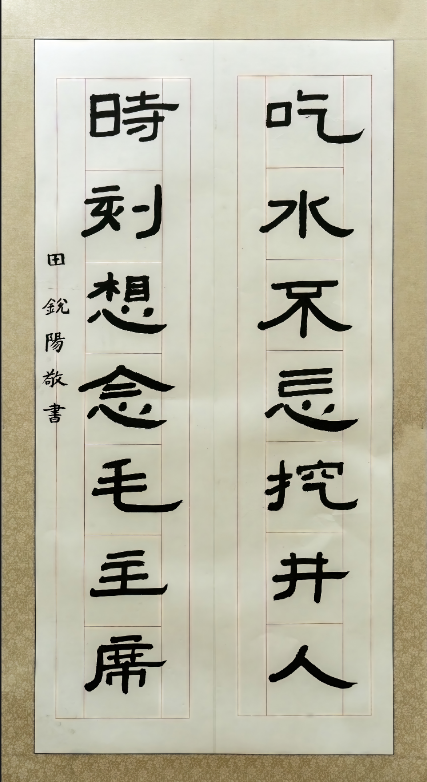 吃水不忘挖井人
時刻想念毛主席
田銳陽敬書